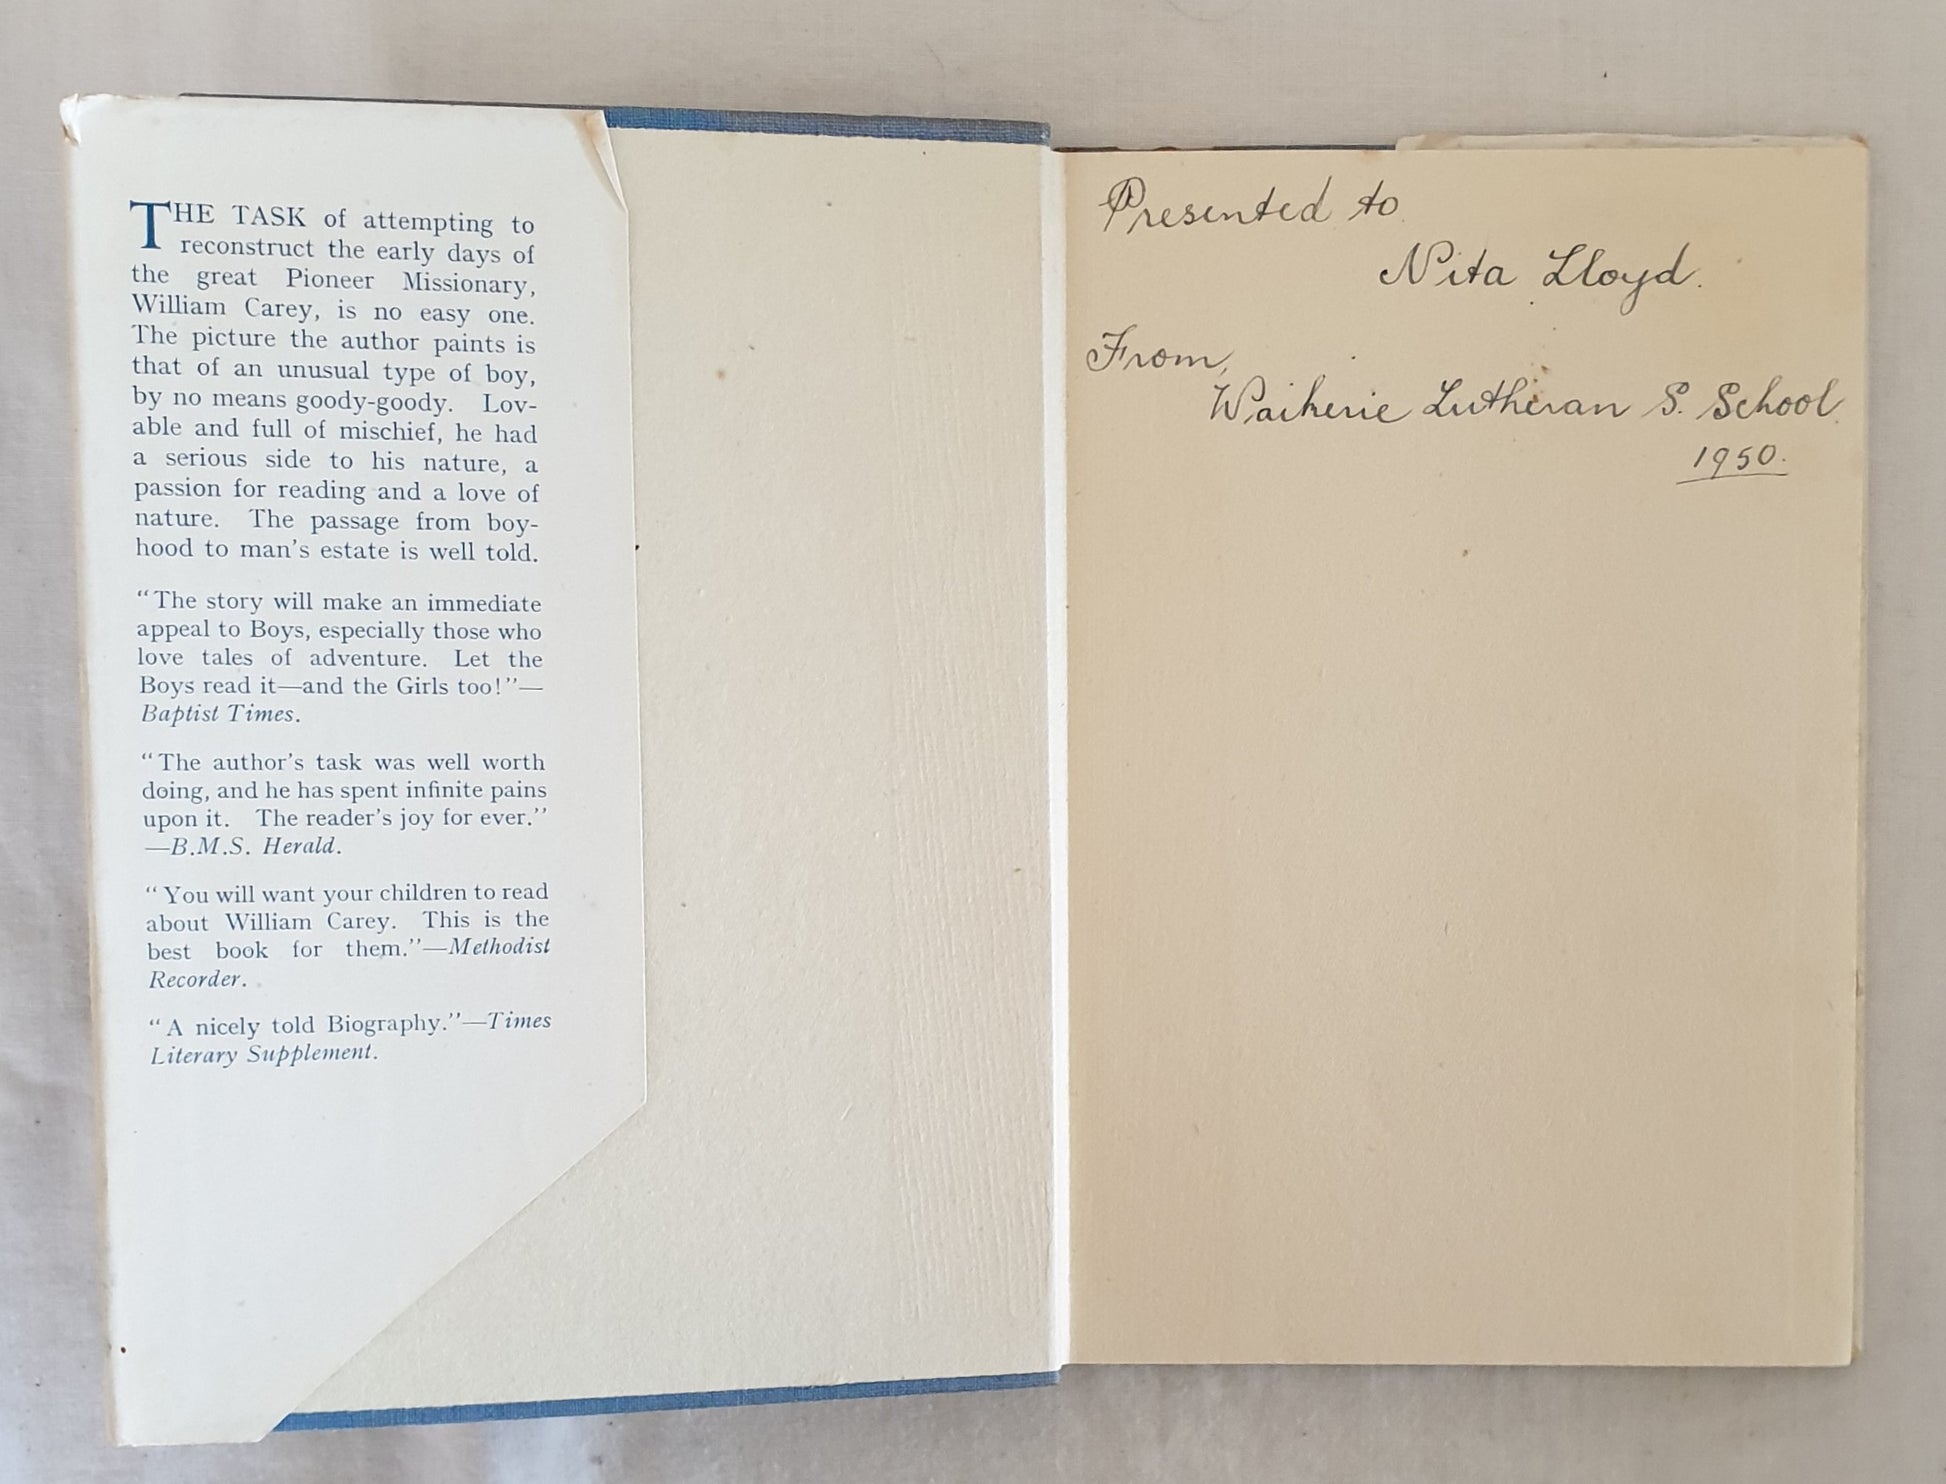 THE TASK of attempting to
reconstruct the early days of
the great Pioneer Missionary,
William Carey, is no easy one.
The picture the author paints is
that of an unusual type of boy,
by no means goody-goody. Lov-
able and full of mischief, he had
a serious side to his nature, a
passion for reading and a love of
nature. The passage from boy-
hood to man's estate is well told.
"The story will make an immediate
appeal to Boys, especially those who
love tales of adventure. Let the
Boys read it—and the Girls too!"—
Baptist Times.
"The author's task was well worth
doing, and he has spent infinite pains
upon it. The reader's joy for ever."
—B.M.S. Herald.
"You will want your children to read
about William Carey. This is the
best book for them."—Methodist
Recorder.
"A nicely told Biography."—Times
Literary Supplement.
Presented to
Nita Lloyd.
From,
Waikerie Lutheran S. School.
1950.